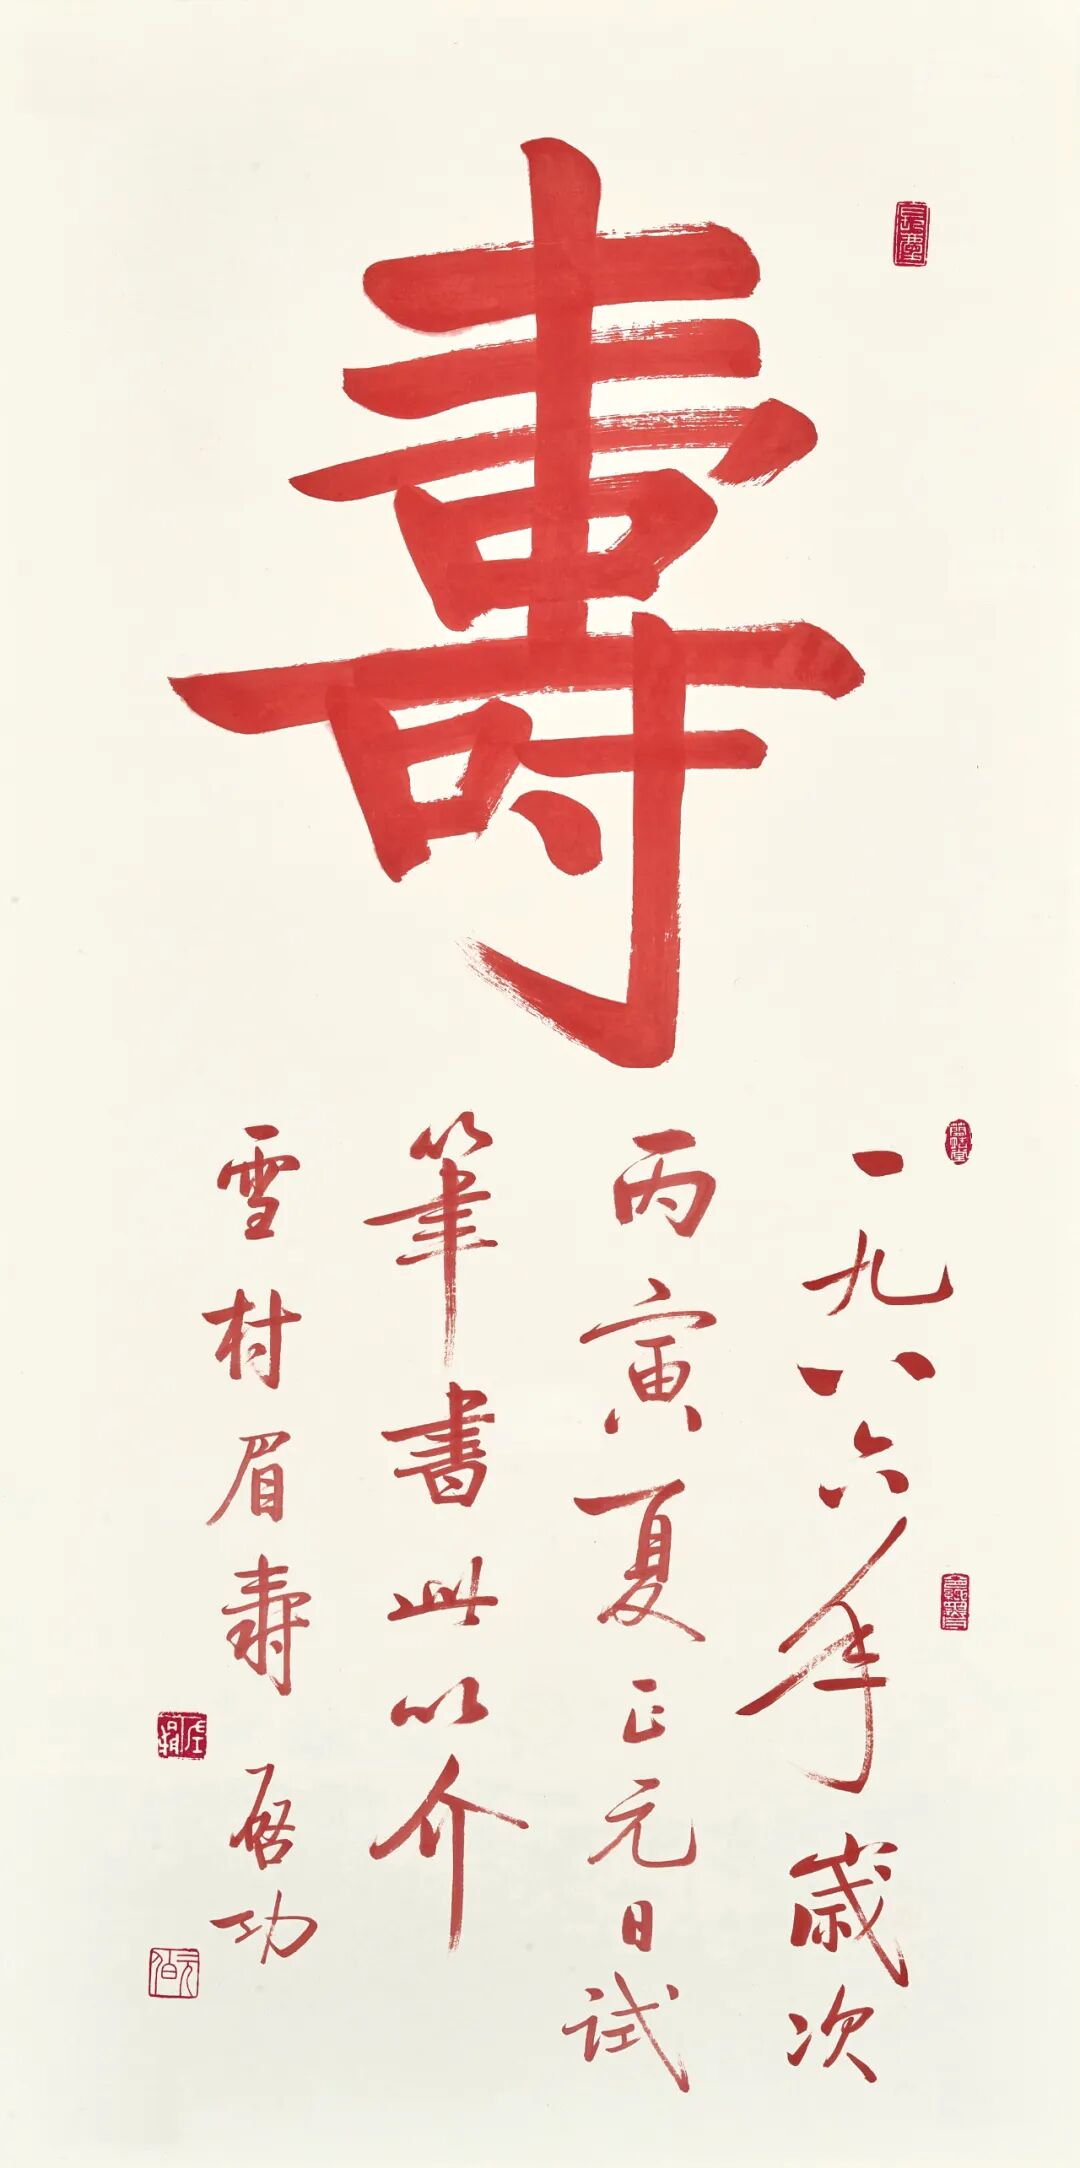 壽
一九八六年歲次
丙寅夏正元日試
筆書此以介
雪村眉壽 啓功